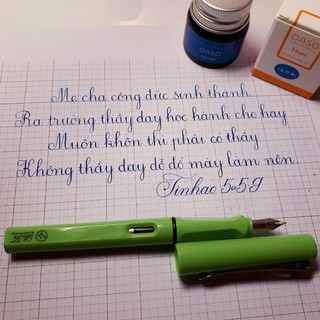 onso
onso
Mẹ cha công đức sinh thành
Ra trường thầy dạy học hành cho hay
Muốn khôn thì phải có thầy
Không thầy dạy dỗ đố mày làm nên.
Tinhao 5059